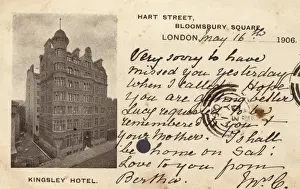 HART STREET,
BLOOMSBURY SQUARE,
LONDON, May 16th 1906.
Very sorry to have
missed you yesterday
when I called. Hope
you are going better
Lucy
remembered to you &
your Mother. I shall
be home on Sat:
Love to you from
Bertha.
KINGSLEY HOTEL.